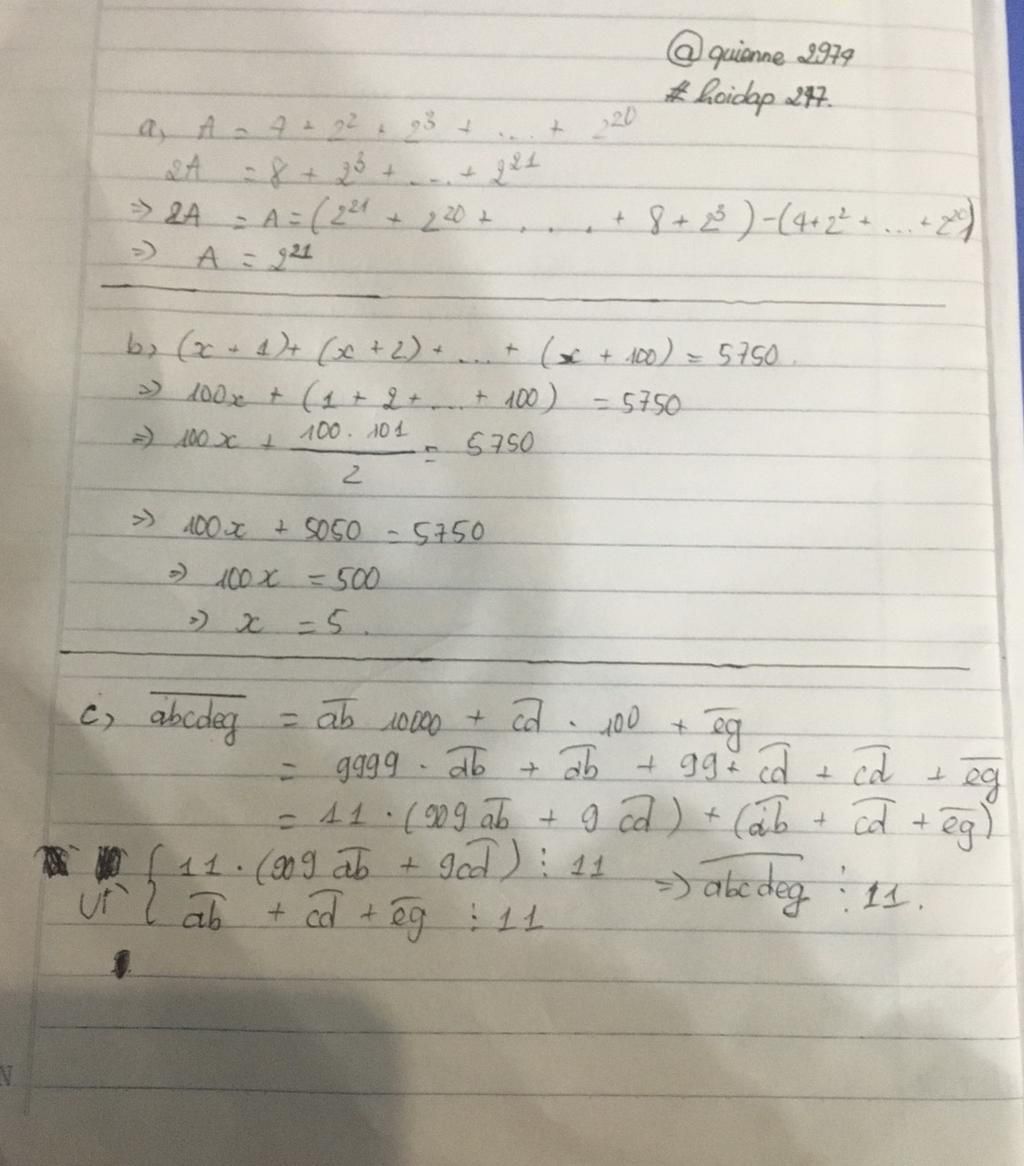 @quienne 2979
# hoidap 247.
a, A = 4 + 2² + 2³ + ... + 2²⁰
2A = 8 + 2³ + ... + 2²¹
=> 2A = A = (2²¹ + 2²⁰ + .... + 8 + 2³) - (4 + 2² + ... + 2²⁰)
=> A = 2²¹
b, (x + 1) + (x + 2) + ... + (x + 100) = 5750.
=> 100x + (1 + 2 + ... + 100) = 5750
=> 100x + \frac{100 . 101}{2} = 5750
=> 100x + 5050 = 5750
=> 100x = 500
=> x = 5.
c, \overline{abcdeg} = \overline{ab} 10000 + \overline{cd} . 100 + \overline{eg}
= 9999 . \overline{ab} + \overline{ab} + 99 + \overline{cd} + \overline{cd} + \overline{eg}
= 11 . (909 \overline{ab} + 9 \overline{cd}) + (\overline{ab} + \overline{cd} + \overline{eg})
Vì { 11 . (909 \overline{ab} + 9 \overline{cd}) ⋮ 11 => \overline{abcdeg} ⋮ 11.
\overline{ab} + \overline{cd} + \overline{eg} ⋮ 11